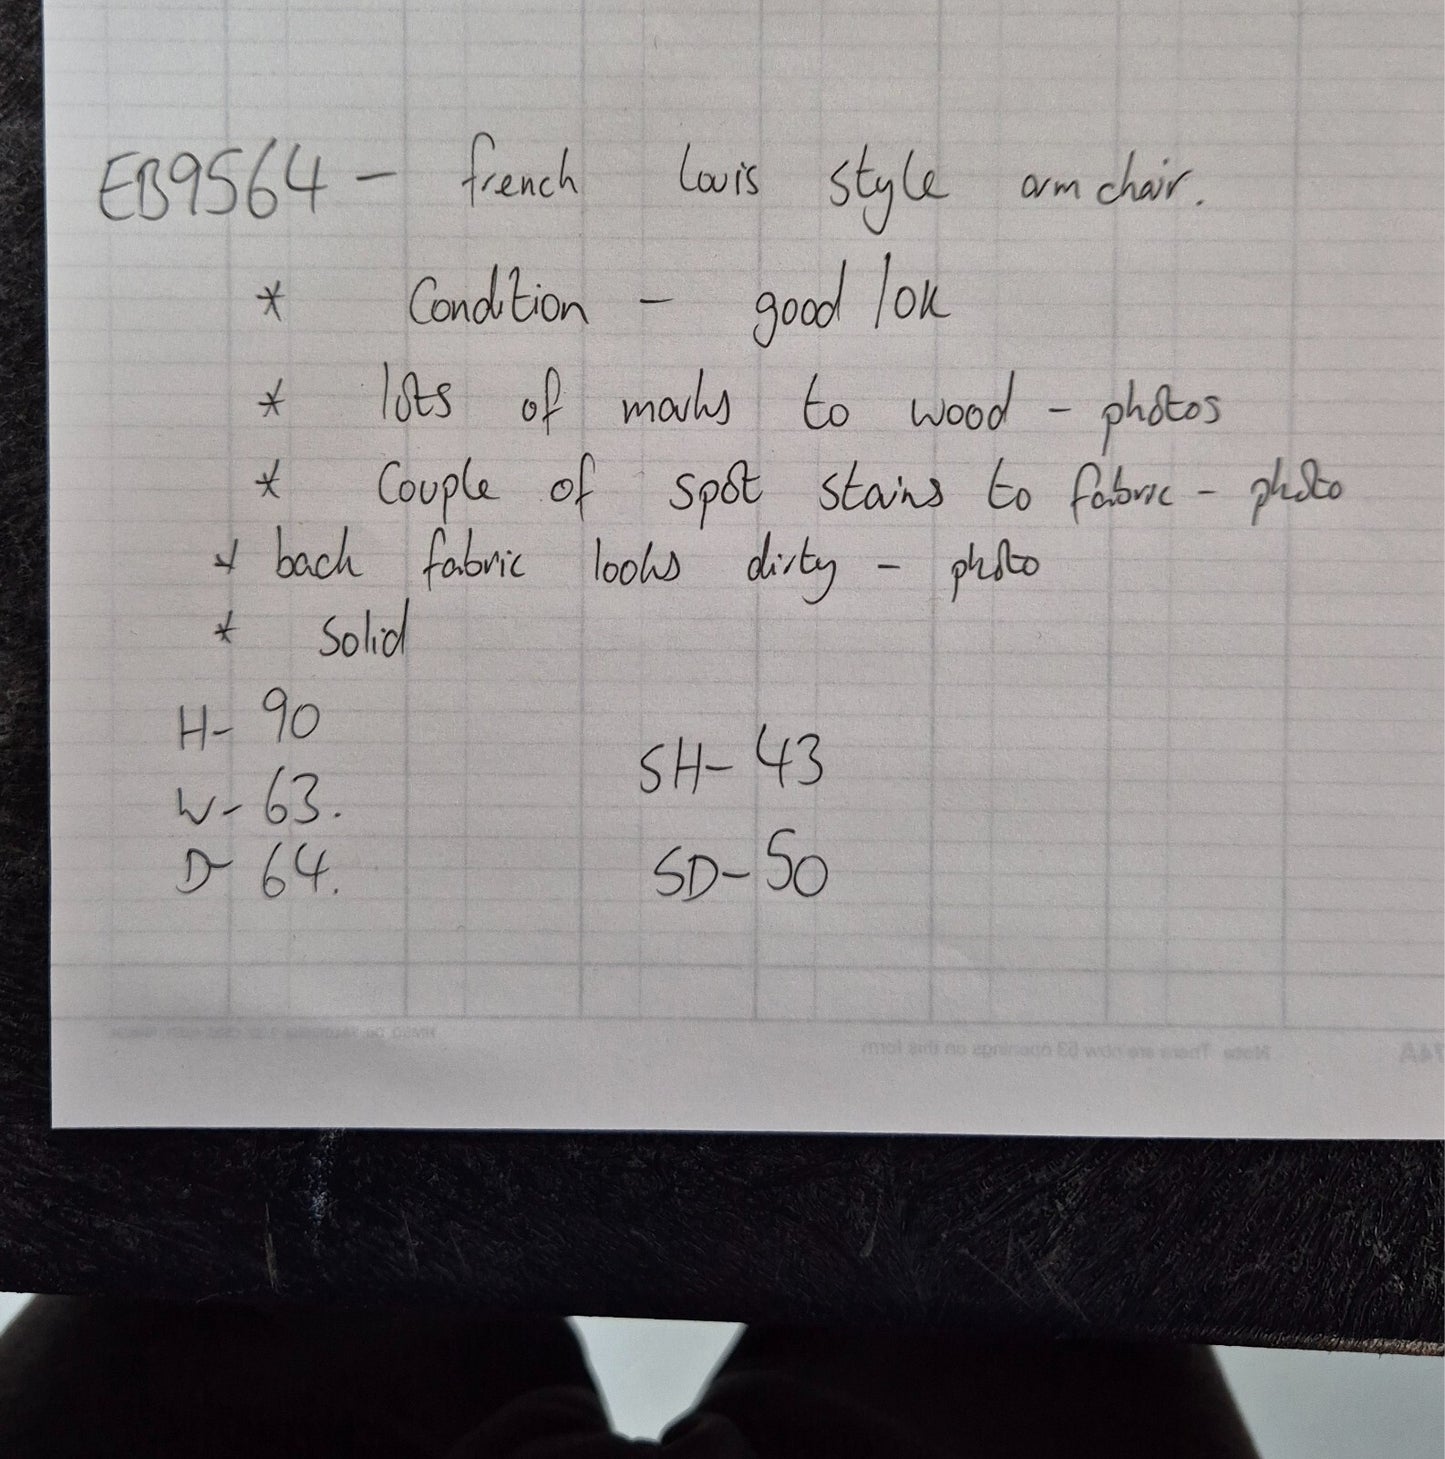 EB9564 - french Louis style armchair.
* Condition - good/ok
* lots of marks to wood - photos
* Couple of spot stains to fabric - photo
* back fabric looks dirty - photo
* Solid
H- 90
W- 63.
D- 64.
SH- 43
SD- 50
Note There are now 63 openings on this form